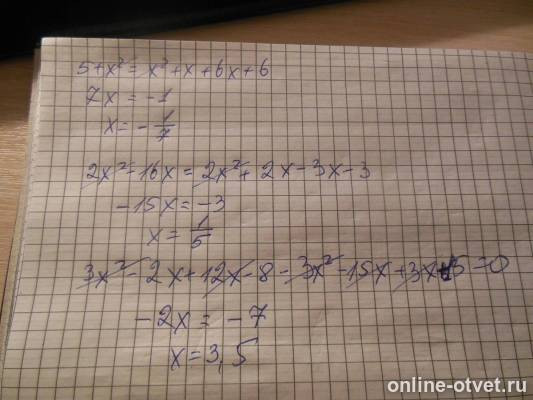 5+x²= x²+x+6x+6
7x = -1
x= -1/7
2x²-16x = 2x²+ 2x-3x-3
-15x = -3
x = 1/5
3x²- 2x+12x-8-3x²-15x+3x+15=0
-2x = -7
x=3,5
online-otvet.ru